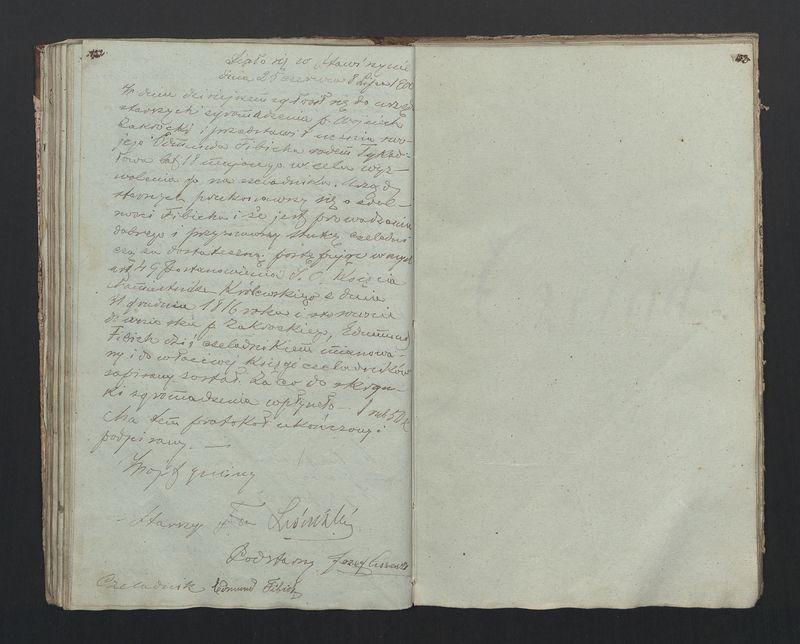 Działo się w Stawiszynie
dnia 25 czerwca 8 Lipca 1900
W dniu dzisiejszem zgłosił się do urzędu
starszych zgromadzenia p. Wojciech
Zakrocki i przedstawił ucznia swo-
jego Edmunda Fibicha rodem
lat 18 mającego w celu wyz-
wolenia go na czeladnika. Urząd
starszych przekonawszy się o zdol-
ności Fibicha i że jest prowadzenia
dobrego i przyznawszy sztukę czeladni
czą za dostateczną, postępując w myśl
art 49 Postanowienia J. O. Księcia
Namiestnika Królewskiego z dnia
31 grudnia 1816 roku i stosownie
do wniosku p. Zakrockiego, Edmund
Fibich dziś czeladnikiem mianowa-
ny i do właściwej Księgi czeladników
zapisany został. Za co do skrzyn-
ki zgromadzenia wpłynęło 1 rub 50 k
Na tem protokół ukończony i
podpisany. —
gminy
Starszy
Podstarszy Józef
Czeladnik Edmund Fibich